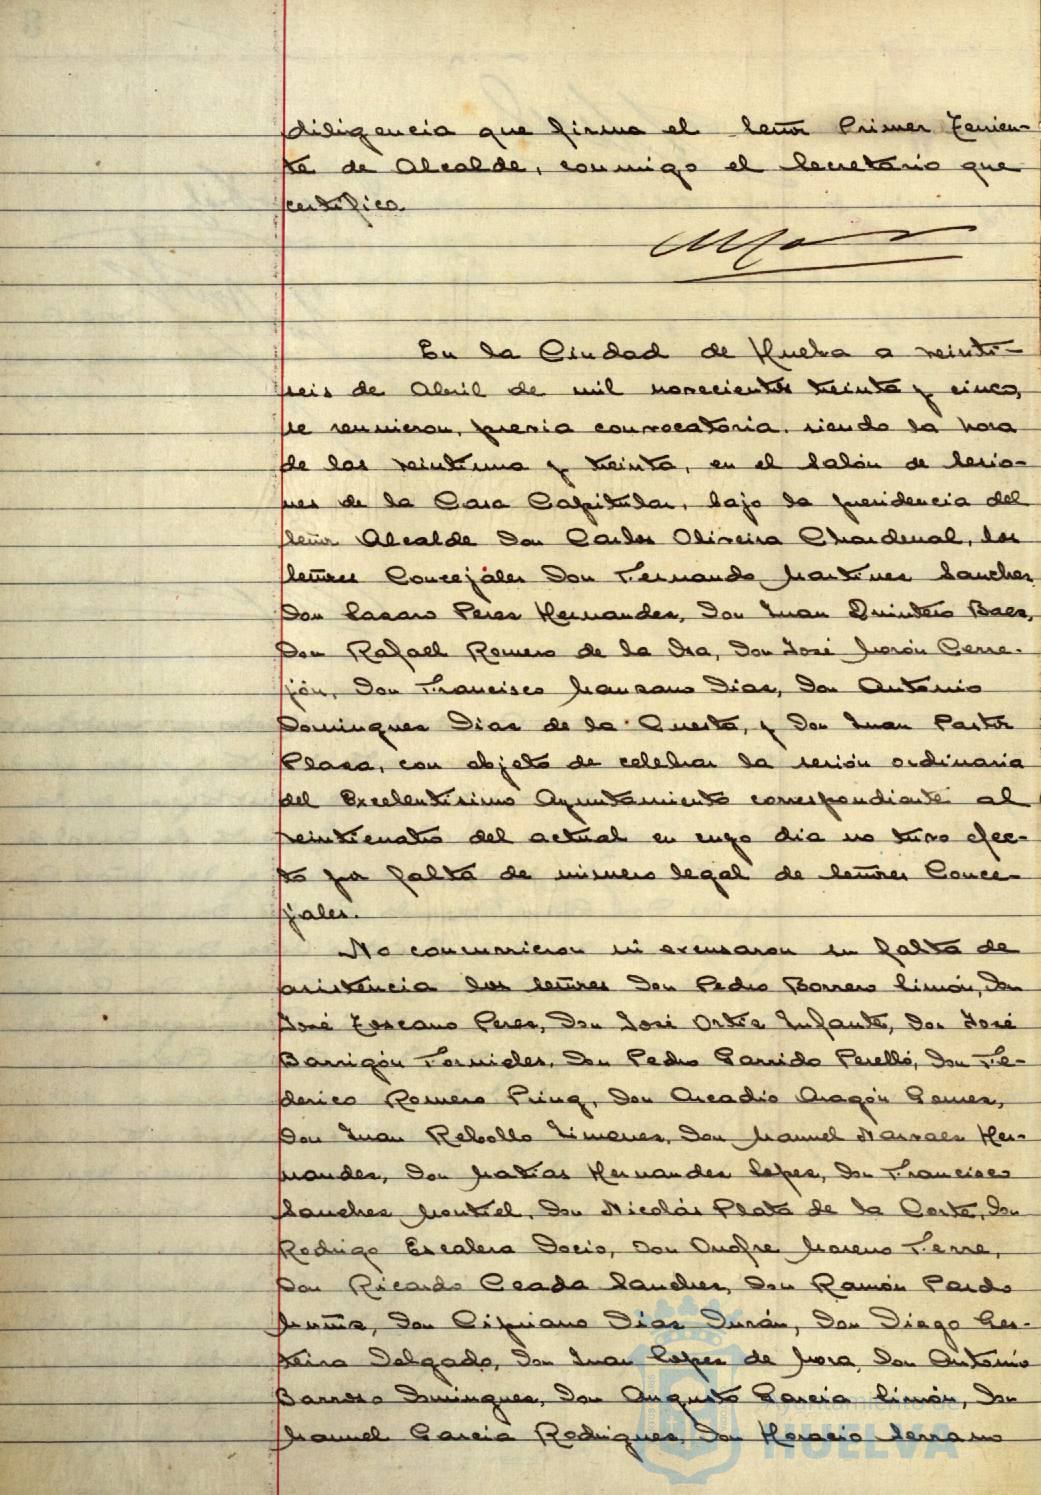 diligencia que firma el Señor Primer Tenien-
te de Alcalde, conmigo el Secretario que
certifico.
En la Ciudad de Huelva a veinti-
seis de Abril de mil novecientos treinta y cinco,
se reunieron, previa convocatoria, siendo la hora
de las veintiuna y treinta, en el Salón de Sesio-
nes de la Casa Capitular, bajo la presidencia del
Señor Alcalde Don Carlos Oliveira Chardenal, los
Señores Concejales Don Fernando Martinez Sanchez
Don Lazaro Perez Hernandez, Don Juan Quintero Baez,
Don Rafael Romero de la Osa, Don José Morón Cerre-
jón, Don Francisco Manzano Diaz, Don Antonio
Dominguez Diaz de la Cuesta, y Don Juan Pastor
Plaza, con objeto de celebrar la sesión ordinaria
del Excelentisimo Ayuntamiento correspondiente al
veinticuatro del actual en cuyo dia no tuvo efec-
to por falta de número legal de Señores Conce-
jales.
No concurrieron ni excusaron su falta de
asistencia los señores Don Pedro Borrero Limón, Don
José Toscano Perez, Don José Ortiz Infante, Don José
Barrigón Fornieles, Don Pedro Garrido Perelló, Don Fe-
derico Romero Priug, Don Arcadio Aragón Gomez,
Don Juan Rebollo Jimenez, Don Manuel Narvaez Her-
nandez, Don Matias Hernandez Lopez, Don Francisco
Sanchez Montiel, Don Nicolás Plata de la Corte, Don
Rodrigo Escalera Docio, Don Onofre Moreno Ferre,
Don Ricardo Ceada Sanchez, Don Ramón Pardo
Muñiz, Don Cipriano Diaz Durán, Don Diego Ger-
teira Delgado, Don Juan Lopez de Mora, Don Antonio
Barroso Dominguez, Don Augusto Garcia Limón, Don
Manuel Garcia Rodriguez, Don Horacio Serrano
Ayuntamiento de
HUELVA